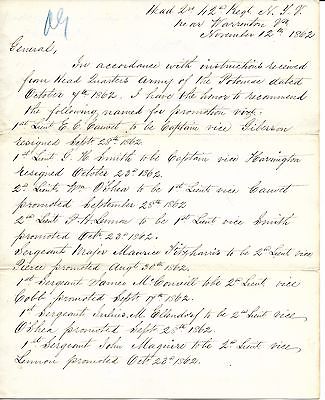 Head Qrs 42d Regt N.Y.V.
near Warrenton Va
November 12th 1862
General,
In accordance with instructions received
from Head Quarters Army of the Potomac dated
October 7th 1862. I have the honor to recommend
the following named for promotion viz
1st Lieut E. C. Cauvet to be Captain vice
resigned Septr 28th 1862
1st Lieut J. H. Smith to be Captain vice Harrington
resigned October 23d 1862.
2d Lieut Wm O'Shea to be 1st Lieut vice Cauvet
promoted September 28th 1862
2d Lieut Lennon to be 1st Lieut vice Smith
promoted Octr 23d 1862.
Sergeant Major Maurice Fitzharris to be 2d Lieut vice
Pierce promoted Augt 30th 1862.
1st Sergeant James McConnell to be 2d Lieut vice
Cobb promoted Septr 17th 1862.
1st Sergeant Julius M. Ellendorf to be 2d Lieut vice
O'Shea promoted Sept 28th 1862.
1st Sergeant John Maguire to be 2d Lieut vice
Lennon promoted Octr 23d 1862.